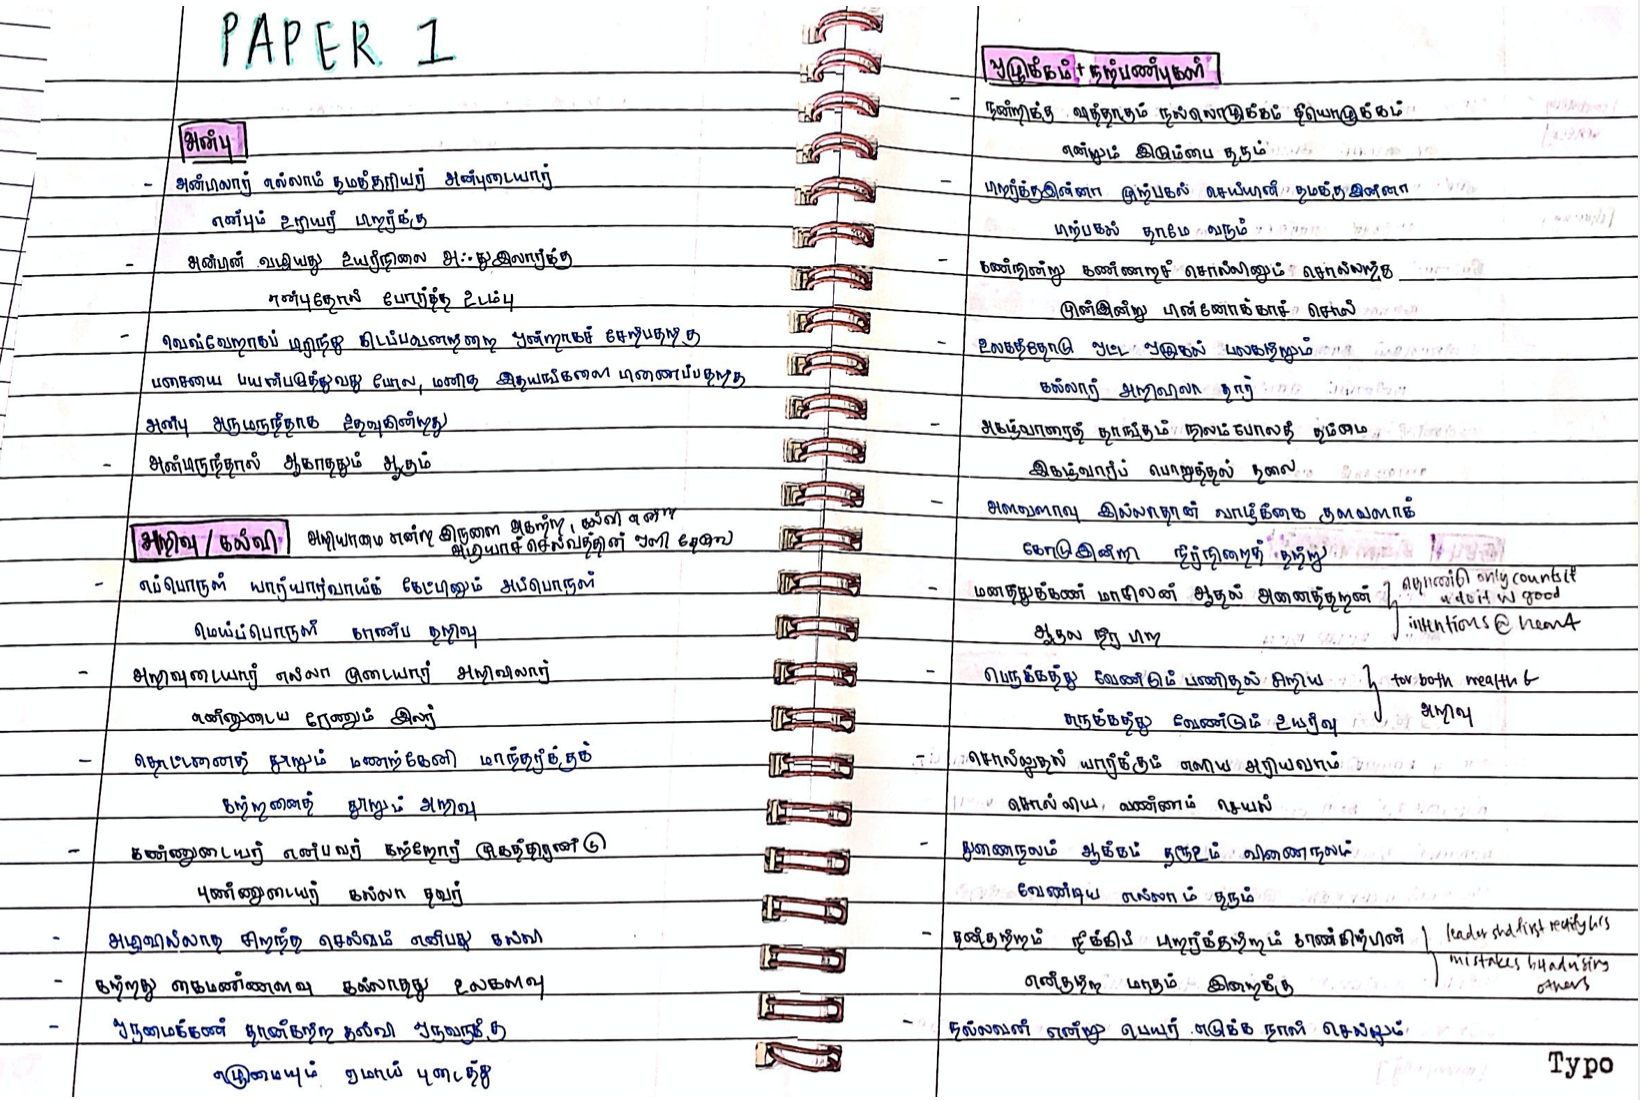 PAPER 1
அன்பு
- அன்பிலார் எல்லாம் தமக்குரியர் அன்புடையார்
என்பும் உரியர் பிறர்க்கு
- அன்பின் வழியது உயர்நிலை அஃதுஇலார்க்கு
என்புதோல் போர்த்த உடம்பு
- வெவ்வேறாகப் பிரிந்து கிடப்பவனற்றை ஒன்றாகச் சேர்ப்பதற்கு
பசையை பயன்படுத்துவது போல, மனித இதயங்களை பிணைப்பதற்கு
அன்பு அருமருந்தாக உதவுகின்றது
- அன்பிருந்தால் ஆகாததும் ஆகும்
அறிவு / கல்வி அறியாமை என்ற இருளை அகற்ற, கல்வி என்ற
அழியாச் செல்வத்தின் ஒளி தேவை
- எப்பொருள் யார்யார்வாய்க் கேட்பினும் அப்பொருள்
மெய்ப்பொருள் காண்ப தறிவு
- அறிவுடையார் எல்லா முடையார் அறிவிலார்
என்னுடைய ரேனும் இலர்
- தொட்டனைத் தூறும் மணற்கேணி மாந்தர்க்குக்
கற்றனைத் தூறும் அறிவு
- கண்ணுடையர் என்பவர் கற்றோர் முகத்திரண்டு
புண்ணுடையர் கல்லா தவர்
- அழிவில்லாத சிறந்த செல்வம் என்பது கல்வி
- கற்றது கைமண்ணளவு கல்லாதது உலகளவு
- ஒருமைக்கண் தான்கற்ற கல்வி ஒருவற்கு
எழுமையும் ஏமாப் புடைத்து
ஒழுக்கம் + நற்பண்புகள்
- நன்றிக்கு வித்தாகும் நல்லொழுக்கம் தீயொழுக்கம்
என்றும் இடும்பை தரும்
- பிறர்க்குஇன்னா முற்பகல் செய்யின் தமக்குஇன்னா
பிற்பகல் தாமே வரும்
- கண்நின்று கண்ணறச் சொல்லினும் சொல்லற்க
முன்இன்று பின்னோக்காச் சொல்
- உலகத்தோடு ஒட்ட ஒழுகல் பலகற்றும்
கல்லார் அறிவிலா தார்
- அகழ்வாரைத் தாங்கும் நிலம்போலத் தம்மை
இகழ்வார்ப் பொறுத்தல் தலை
- அளவளாவு இல்லாதான் வாழ்க்கை குளவளாக்
கோடுஇன்றி நீர்நிறைந் தற்று
- மனத்துக்கண் மாசிலன் ஆதல் அனைத்தறன் தொண்டு only counts if
u do it w good
ஆகுல நீர பிற intentions @ heart
- பெருக்கத்து வேண்டும் பணிதல் சிறிய for both wealth &
சுருக்கத்து வேண்டும் உயர்வு அறிவு
- சொல்லுதல் யார்க்கும் எளிய அரியவாம்
சொல்லிய வண்ணம் செயல்
- துணைநலம் ஆக்கம் தரூஉம் வினைநலம்
வேண்டிய எல்லாம் தரும்
- தன்குற்றம் நீக்கிப் பிறர்க்குற்றம் காண்கிற்பின் leader shd first rectify his
mistakes b4 advising
என்குற்ற மாகும் இறைக்கு others
- நல்லவன் என்று பெயர் எடுக்க நாள் செல்லும்
Typo